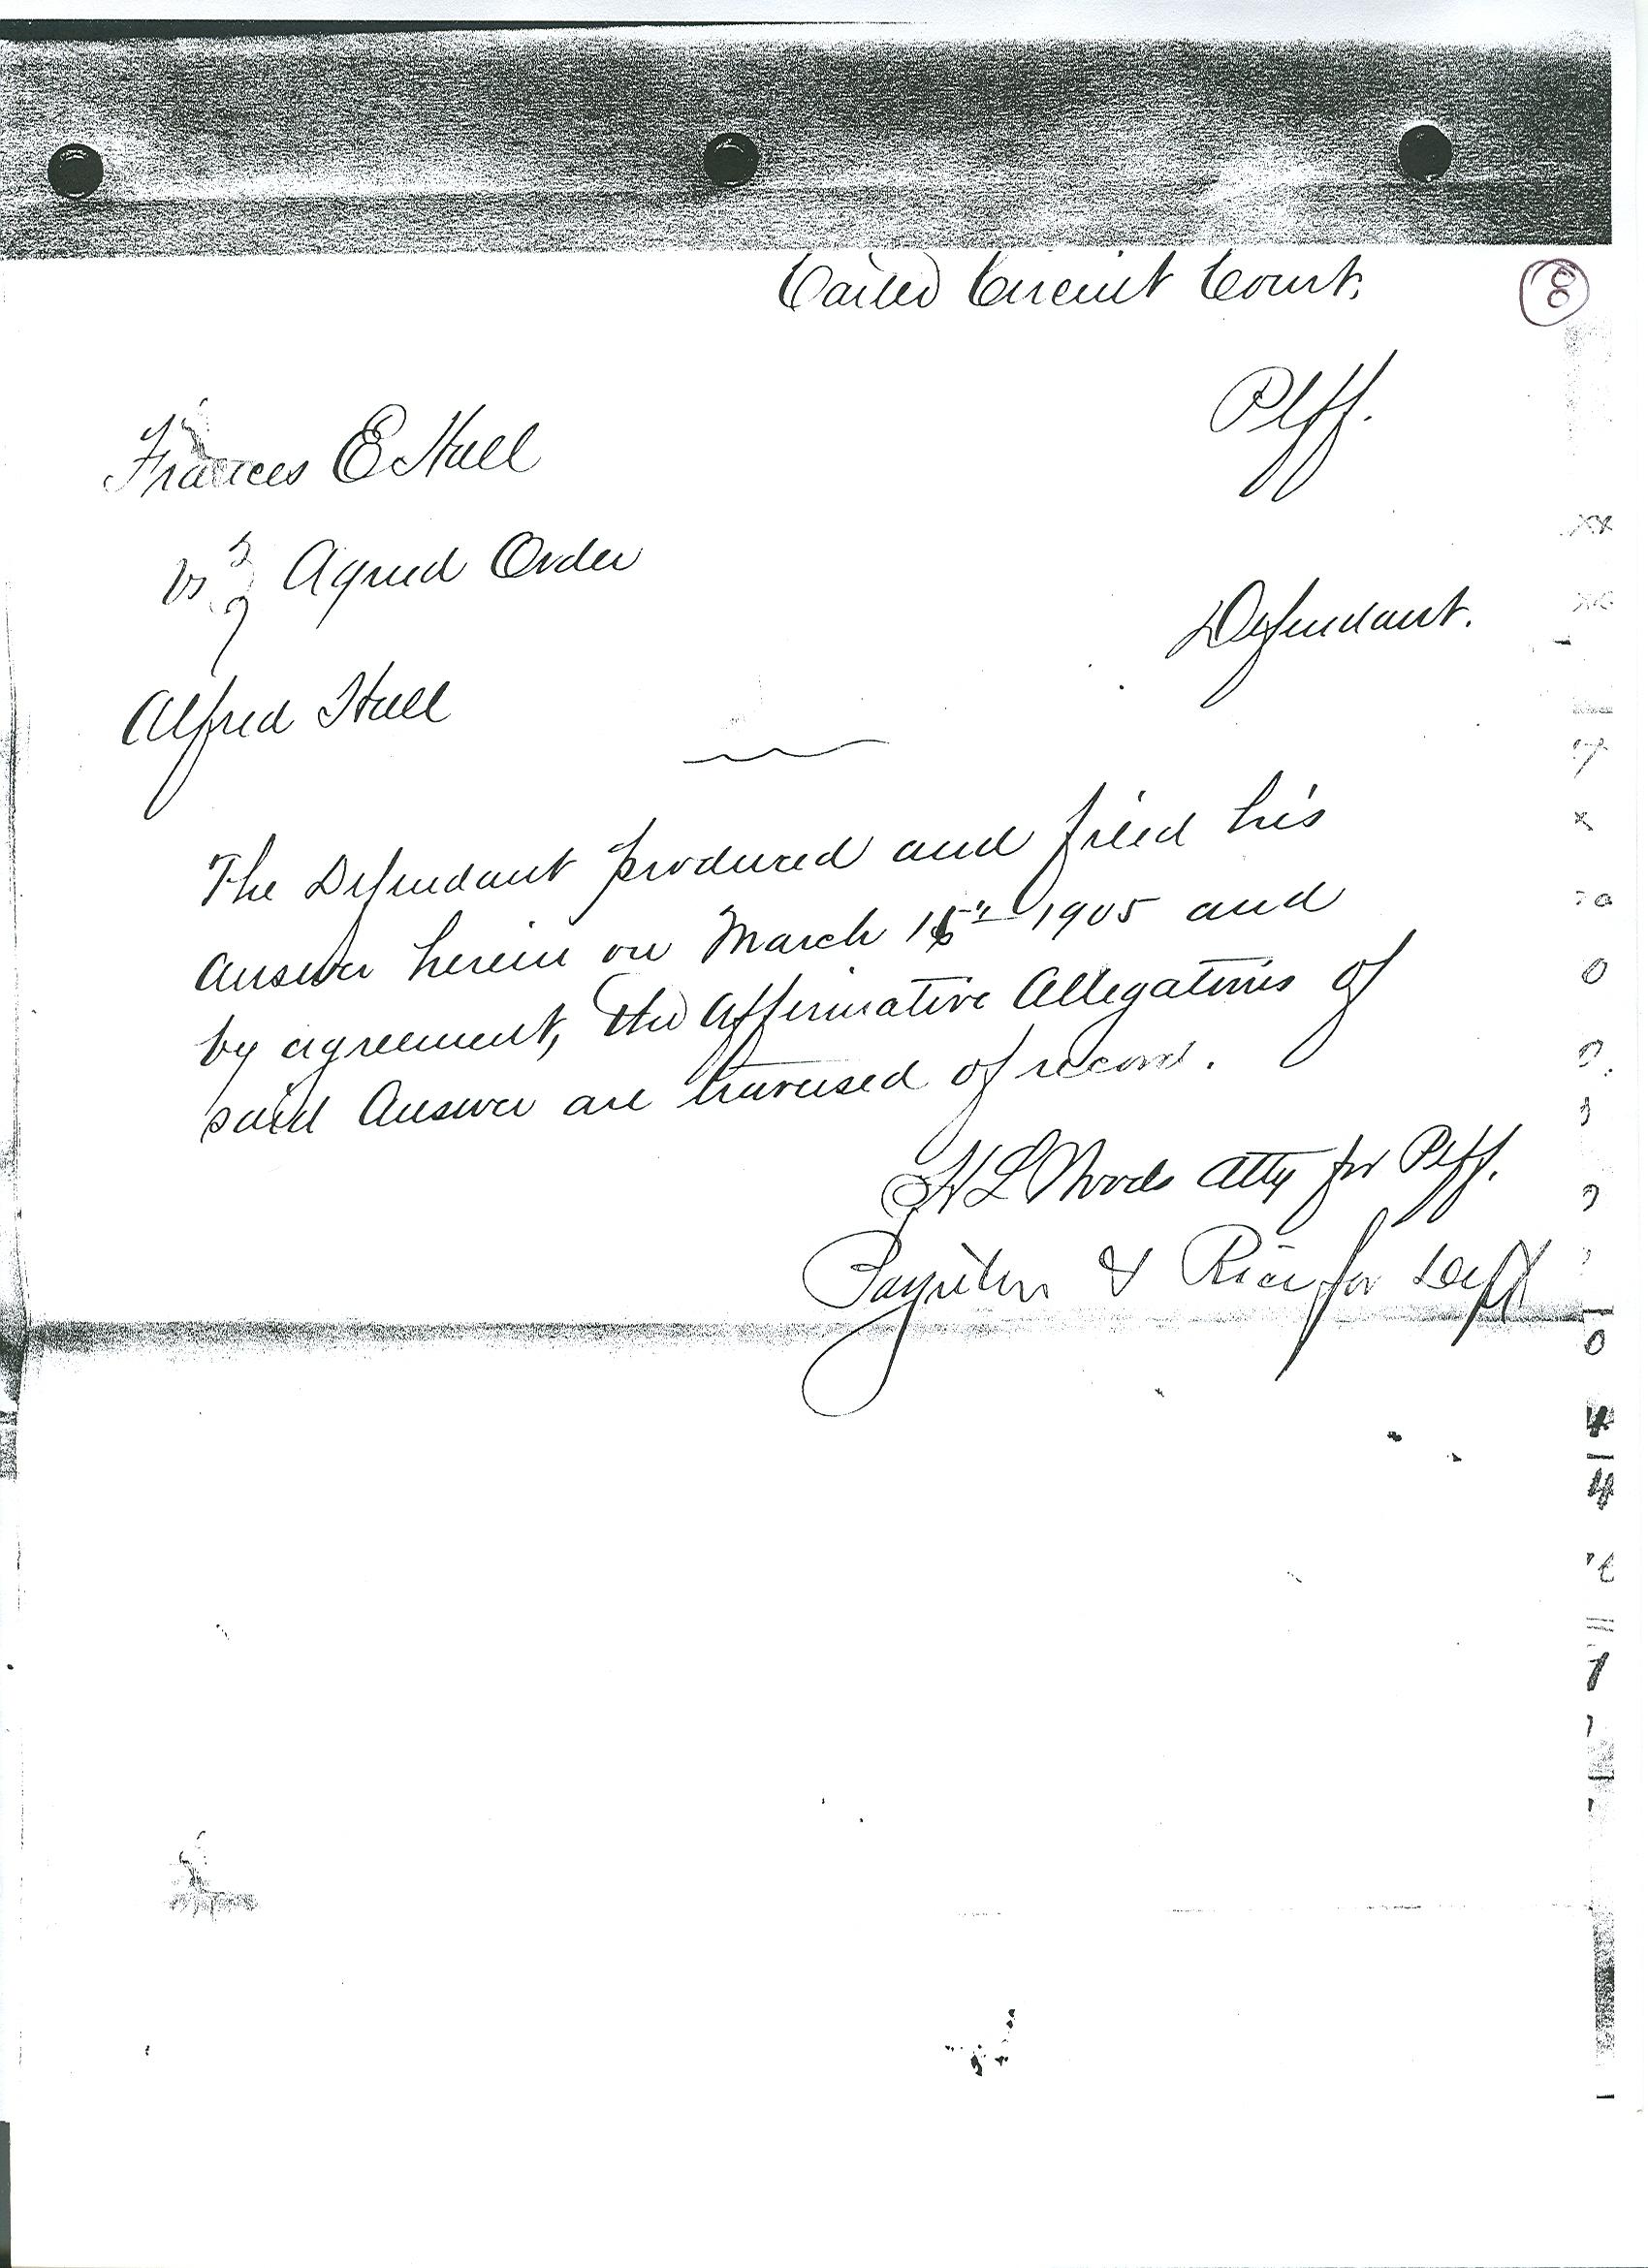 Carter Circuit Court.
8
Plff.
Frances E Hall
vs } Agreed Order
Defendant.
Alfred Hall
The Defendant produced and filed his
Answer herein on March 1905 and
by agreement, the Affirmative Allegations of
said Answer are traversed of record.
H L Woods Atty for Plff.
& Rice for Deft